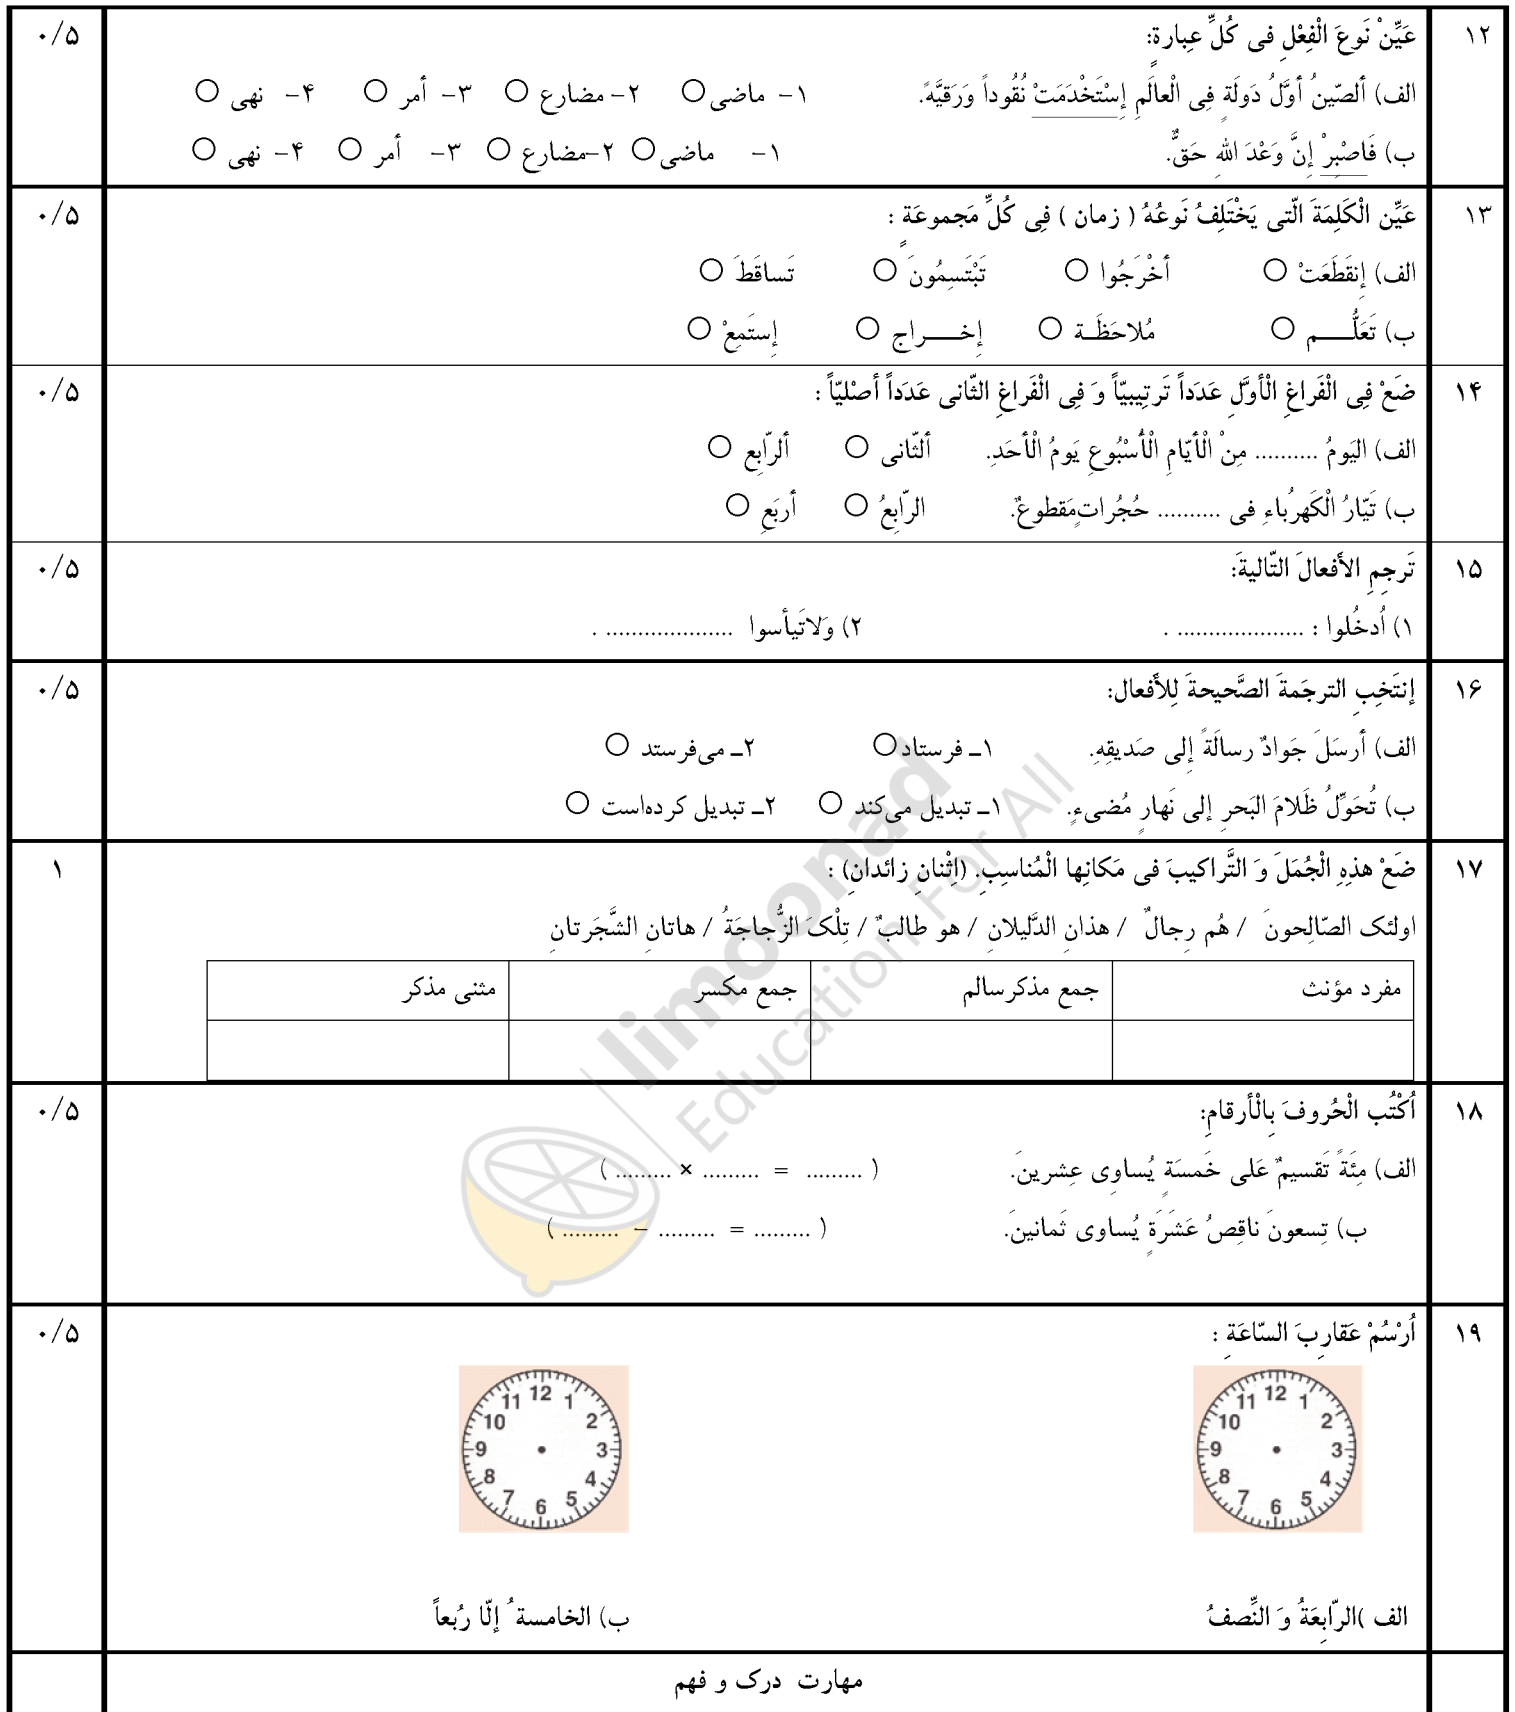 ۱۲ عَيِّنْ نَوعَ الْفِعْلِ فی كُلِّ عِبارةٍ: ۰/۵
الف) ألصّينُ أوَّلُ دَولَةٍ فِی الْعالَمِ إسْتَخْدَمَتْ نُقُوداً وَرَقيَّهً. ۱- ماضی ○ ۲- مضارع ○ ۳- أمر ○ ۴- نهی ○
ب) فَاصْبِرْ إنَّ وَعْدَ اللهِ حَقٌّ. ۱- ماضی ○ ۲-مضارع ○ ۳- أمر ○ ۴- نهی ○
۱۳ عَيِّن الْكَلِمَةَ الّتی يَخْتَلِفُ نَوعُهُ ( زمان ) فِی كُلِّ مَجموعَةٍ : ۰/۵
الف) إنقَطَعَتْ ○ أخْرَجُوا ○ تَبْتَسِمُونَ ○ تَساقَطَ ○
ب) تَعَلُّـــم ○ مُلاحَظَـة ○ إخــــراج ○ إستَمِعْ ○
۱۴ ضَعْ فِی الْفَراغِ الْأوَّلِ عَدَداً تَرتِيبيّاً وَ فِی الْفَراغِ الثّانی عَدَداً أصْليّاً : ۰/۵
الف) اليَومُ .......... مِنْ الْأيّامِ الْأسْبُوعِ يَومُ الْأحَدِ. ألثّانی ○ ألرّابِع ○
ب) تَيّارُ الْكَهرُباءِ فی .......... حُجُراتٍ مَقطوعٌ. الرّابِعُ ○ أربَعِ ○
۱۵ تَرجِمِ الأفعالَ التّاليةَ: ۰/۵
۱) اُدخُلوا : .................... . ۲) وَلاتَيأسوا .................... .
۱۶ إنتَخِبِ الترجَمةَ الصَّحيحةَ لِلأفعال: ۰/۵
الف) أرسَلَ جَوادٌ رسالَةً إلی صَديقِهِ. ۱ـ فرستاد ○ ۲ـ می‌فرستد ○
ب) تُحَوِّلُ ظَلامَ البَحرِ إلی نَهارٍ مُضیءٍ. ۱ـ تبدیل می‌کند ○ ۲ـ تبدیل کرده‌است ○
۱۷ ضَعْ هذِهِ الْجُمَلَ وَ التَّراكيبَ فی مَكانِها الْمُناسِبِ. (اِثْنانِ زائدانِ) : ۱
اولئک الصّالِحونَ / هُم رِجالٌ / هذانِ الدَّليلانِ / هو طالبٌ / تِلْکَ الزُّجاجَةُ / هاتانِ الشَّجَرتانِ
مفرد مؤنث جمع مذکرسالم جمع مکسر مثنی مذکر
۱۸ اُكْتُب الْحُروفَ بِالْأرقامِ: ۰/۵
الف) مِئَةً تَقسيمٌ عَلی خَمسَةٍ يُساوِی عِشرينَ. ( ......... = ......... × ......... )
ب) تِسعونَ ناقِصُ عَشَرَةٍ يُساوی ثَمانينَ. ( ......... = ......... − ......... )
۱۹ اُرْسُمْ عَقارِبَ السّاعَةِ : ۰/۵
12 1 2 3 4 5 6 7 8 9 10 11
12 1 2 3 4 5 6 7 8 9 10 11
الف )الرّابِعَةُ وَ النِّصفُ ب) الخامسةُ إلّا رُبعاً
مهارت درک و فهم
limoonad
Education For All